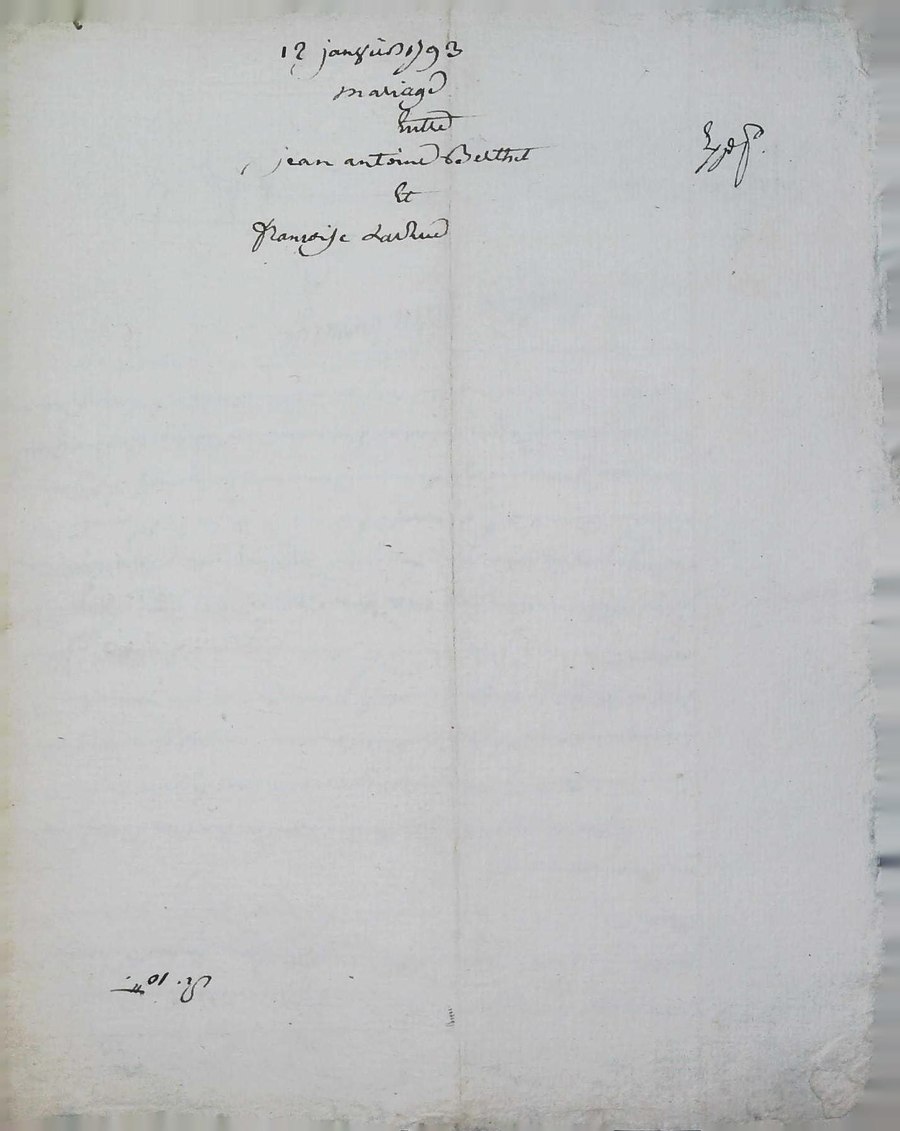 12 janvier 1793
mariage
Entre
jean antoine Berthet
Et
françoise
R. 10